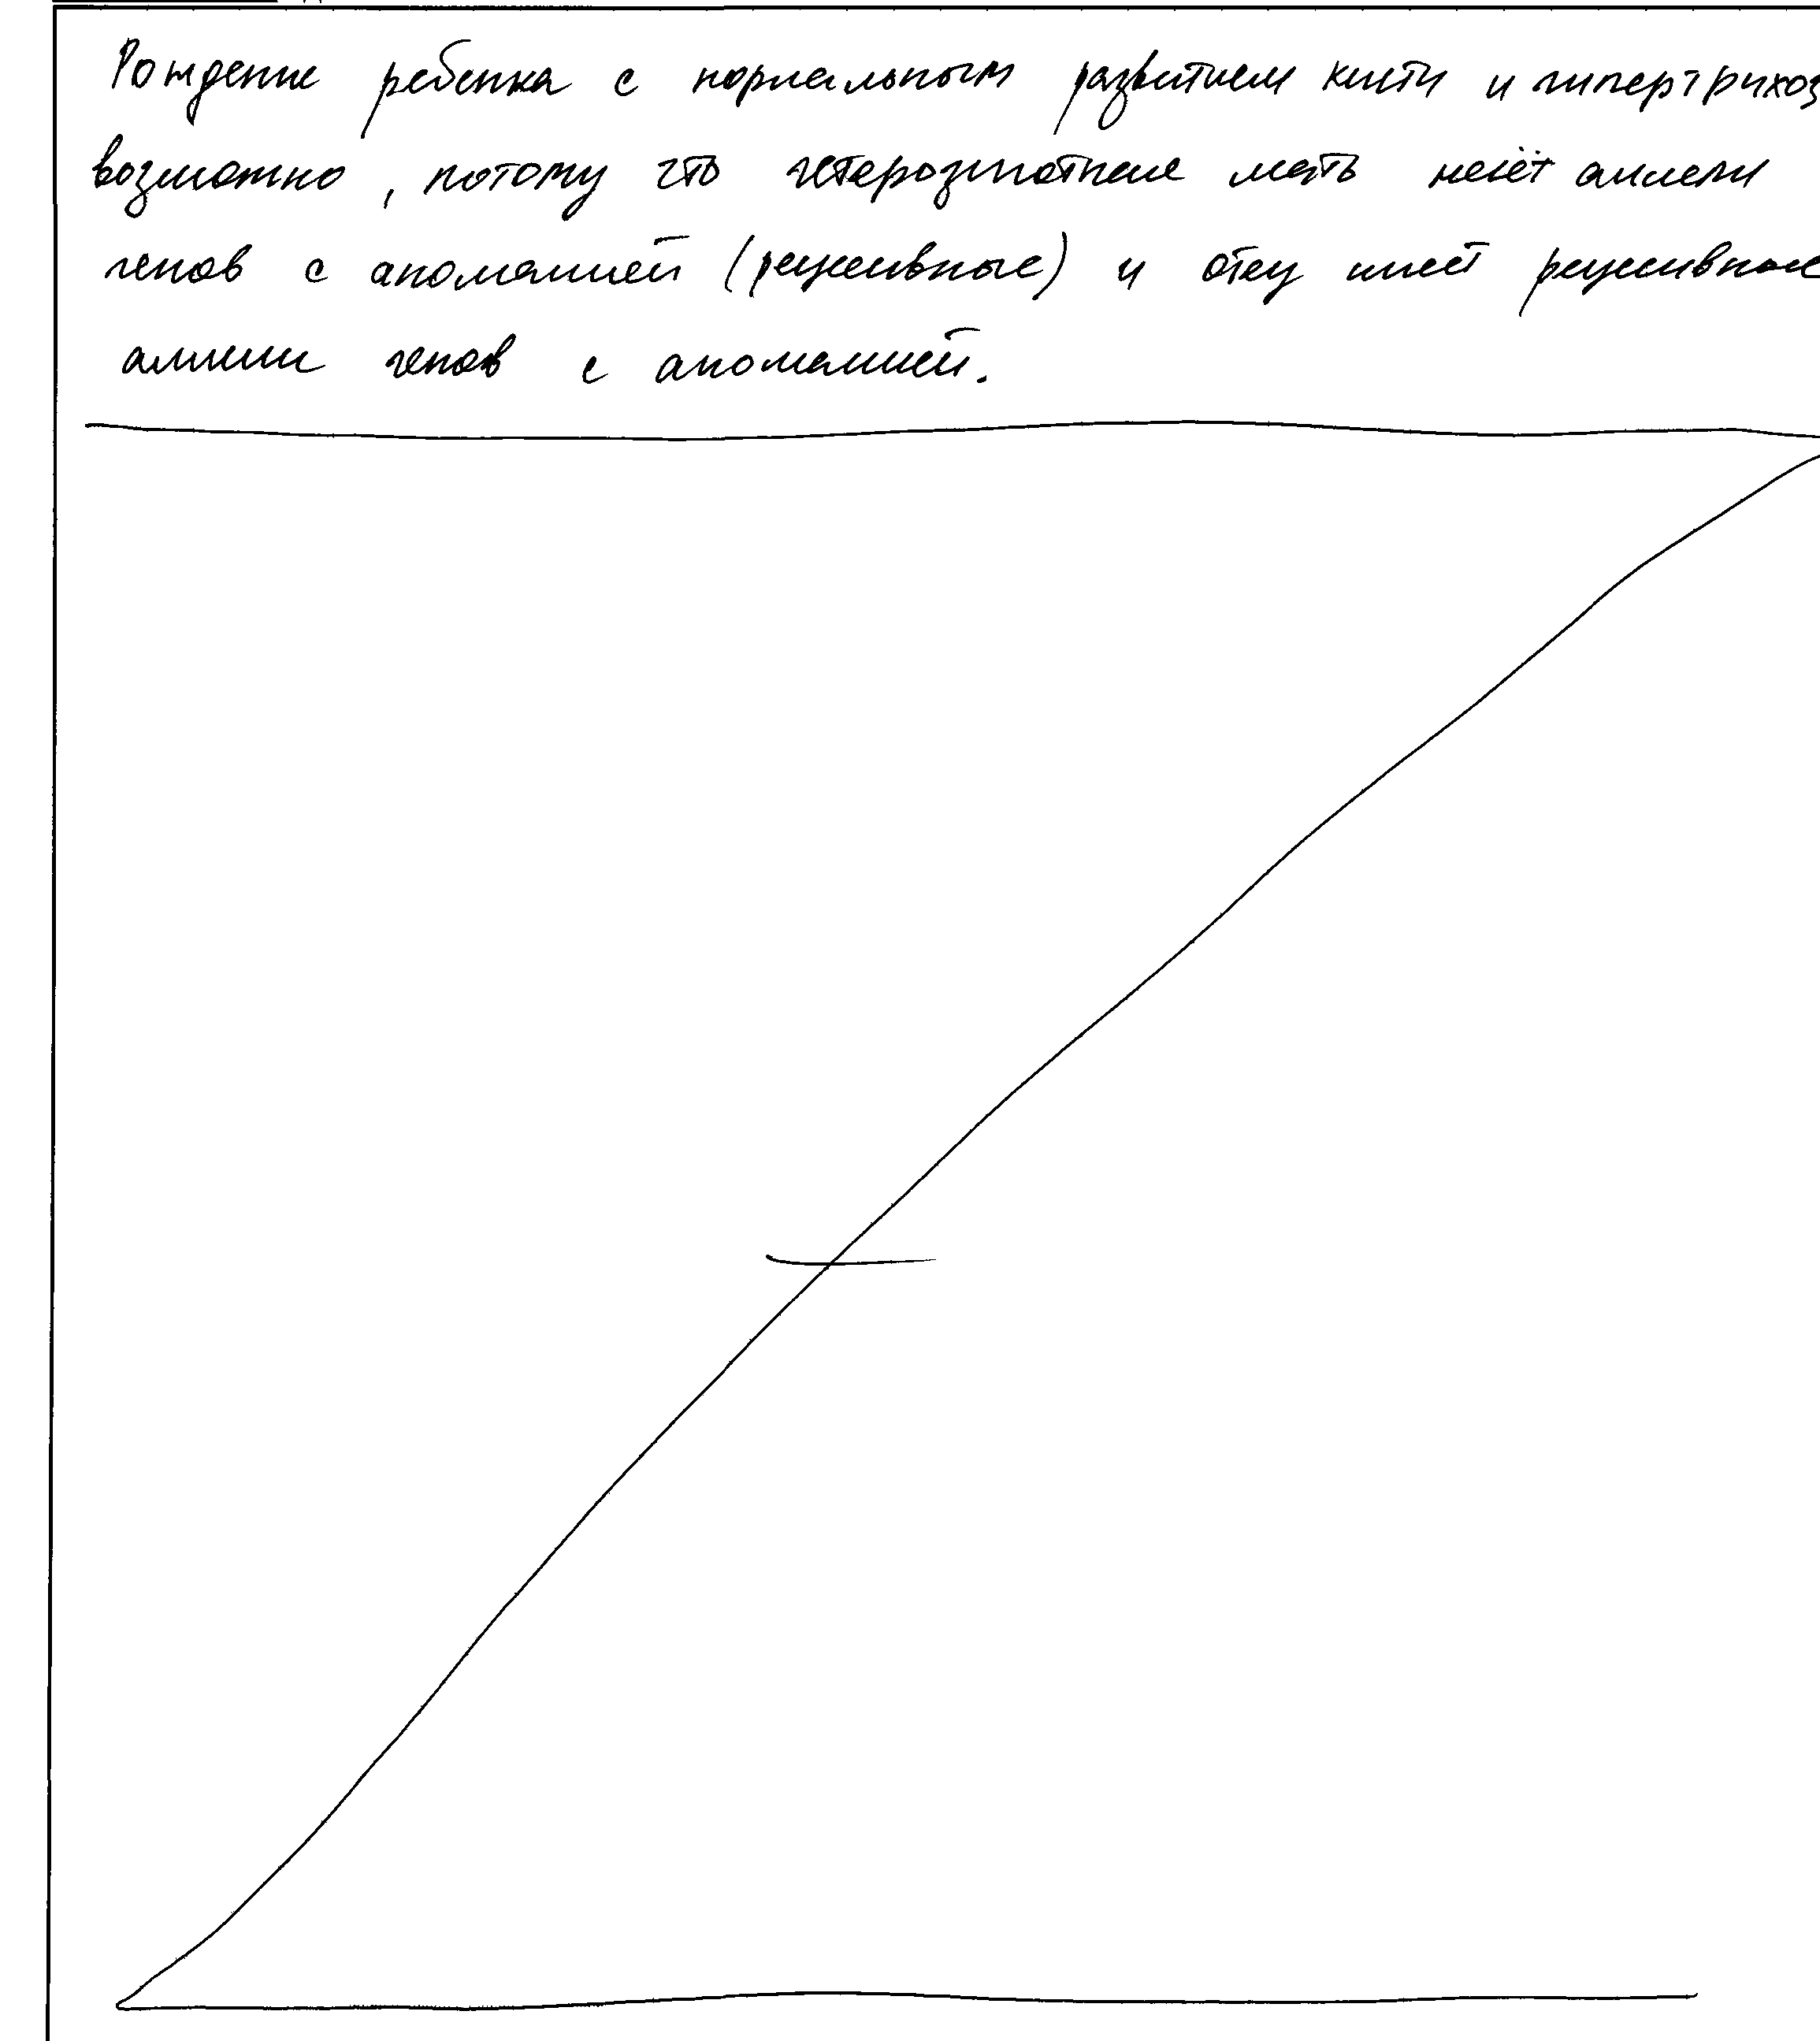 Рождение ребенка с нормальным развитием кисти и гипертрихоз
возможно, потому что гетерозиготная мать несёт аллели
генов с аномалией (рецессивные) и отец имеет рецессивные
аллели генов с аномалией.